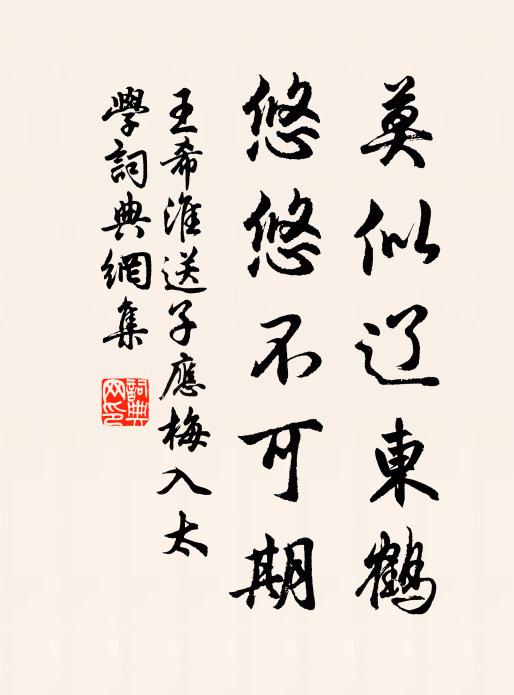 莫似辽東鶴
悠悠不可期
王希淮送子應梅入太
學詞典網集
詞典网印